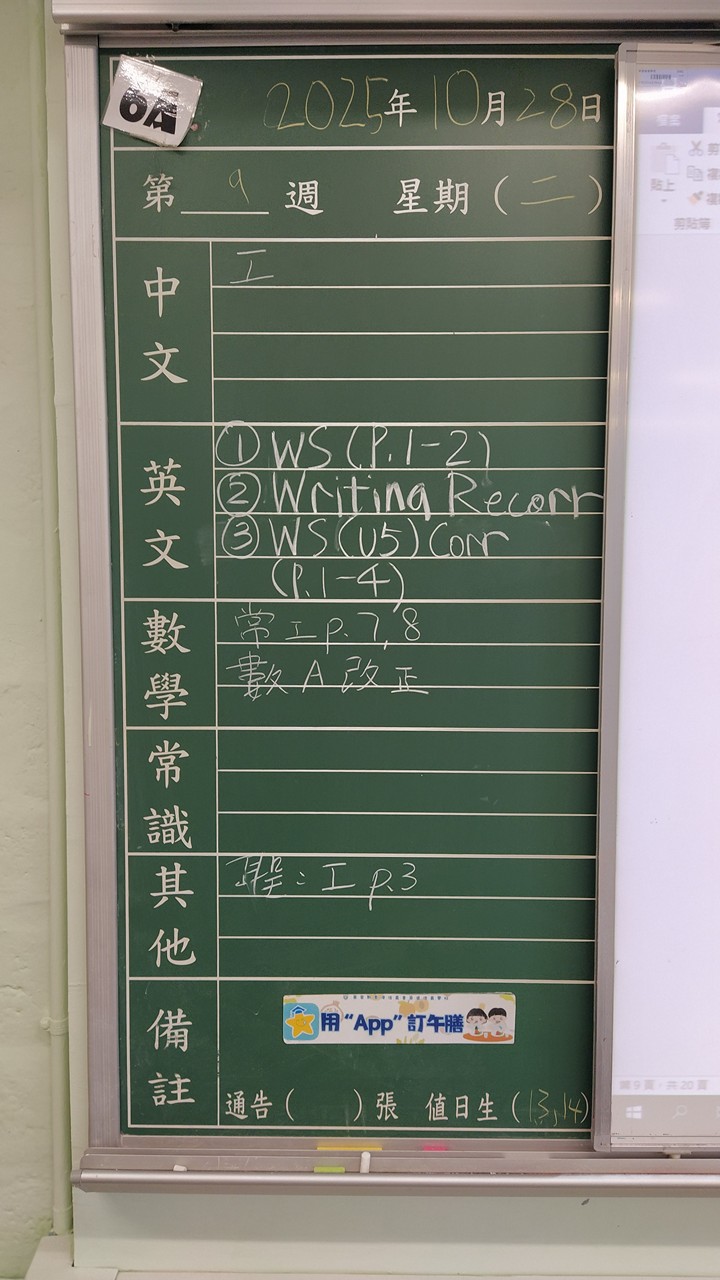 6A
2025年10月28日
第 9 週 星期(二)
中文
工
英文
① WS (P.1-2)
② Writing Recorr
③ WS (U5) Corr
(P.1-4)
數學
常工 p.7,8
數A改正
常識
其他
: 工 p.3
備註
用“App”訂午膳
通告( )張 值日生(13,14)
貼上
剪貼簿
第 9 頁，共 20 頁